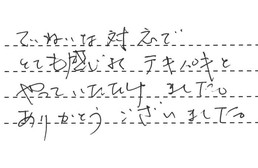 ていねいな対応で
とても感じよく テキパキと
やっていただけ ました。
ありがとう ございました。